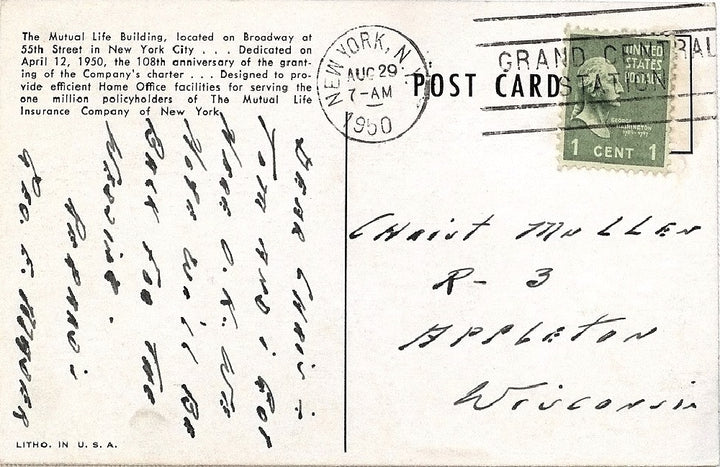 The Mutual Life Building, located on Broadway at
55th Street in New York City . . . Dedicated on
April 12, 1950, the 108th anniversary of the grant-
ing of the Company's charter . . . Designed to pro-
vide efficient Home Office facilities for serving the
one million policyholders of The Mutual Life
Insurance Company of New York.
NEW YORK, N.Y.
AUG 29
7-AM
1950
GRAND CENTRAL
STATION
POST CARD
UNITED
STATES
POSTAGE
GEORGE
WASHINGTON
1 CENT 1
DEAR CHRIS :-
TOM AND I GOT
HERE O.K. WE
HOPE WILL BE
BACK FOR THE
Geo. F.
CHRIST MULLEN
R- 3
APPLETON
WISCONSIN
LITHO. IN U. S. A.